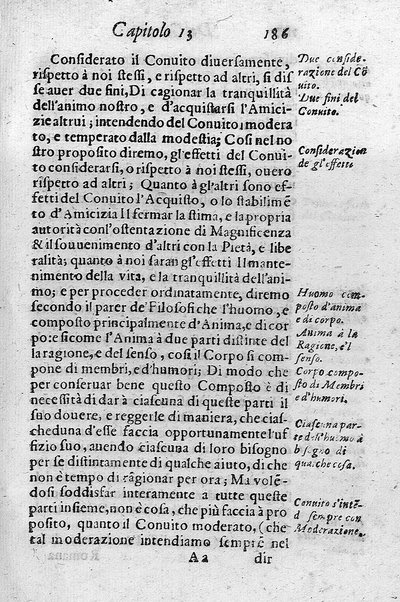 Capitolo 13 186
Considerato il Conuito diuersamente,
rispetto à noi stessi, e rispetto ad altri, si dis
se auer due fini, Di cagionar la tranquillità
dell'animo nostro, e d'acquistarsi l'Amici-
zie altrui; intendendo del Conuito, modera
to, e temperato dalla modestia; Così nel no
stro proposito diremo, gl'effetti del Conui-
to considerarsi, o rispetto à noi stessi, ouero
rispetto ad altri; Quanto à gl'altri sono ef-
fetti del Conuito l'Acquisto, o lo stabilimē
to d'Amicizia Il fermar la stima, e la propria
autorità con l'ostentazione di Magnificenza
& il souuenimento d'altri con la Pietà, e libe
ralità; quanto à noi saran gl'effetti Il mante-
nimento della vita, e la tranquillità dell'ani-
mo; e per proceder ordinatamente, diremo
secondo il parer de' Filosofi che l'huomo, e
composto principalmente d'Anima, e di cor
po: e sicome l'Anima à due parti distinte del
la ragione, e del senso, così il Corpo si com-
pone di membri, ed'humori; Di modo che
per conseruar bene questo Composto è di
necessità di dar à ciascuna di queste parti il
suo douere, e reggerle di maniera, che cias-
cheduna d'esse faccia opportunamente l'uf-
fizio suo, auendo ciascuna di loro bisogno
per se distintamente di qualche aiuto, di che
non è tempo di ragionar per ora; Ma volē-
dosi soddisfar interamente a tutte queste
parti insieme, non è cosa, che più faccia à pro
posito, quanto il Conuito moderato, (che
tal moderazione intendiamo sempre nel
Aa dir
Due conside-
razione del Cō
uito.
Due fini del
Conuito.
Considerazion
de gl'effetti
Huomo com-
posto d'anima
e di corpo.
Anima à la
Ragione, e'l
senso.
Corpo compo-
sto di Membri
e d'humori.
Ciascuna par-
te dell'huomo à
bisogno di
qualche cosa.
Conuito s'intē-
d sempre con
Moderazione.